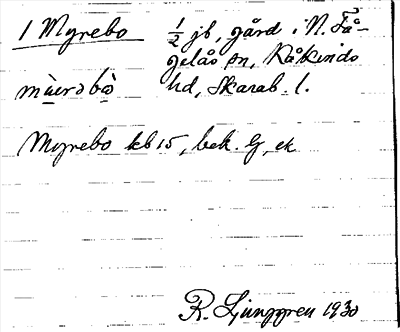 1 Myrebo 1/2 jb, gård i N. Få-
gelås sn, Kåkinds
mɯ̀erəbò hd, Skarab. l.
Myrebo kb 15, bek. G, ek
R. Ljunggren 1930